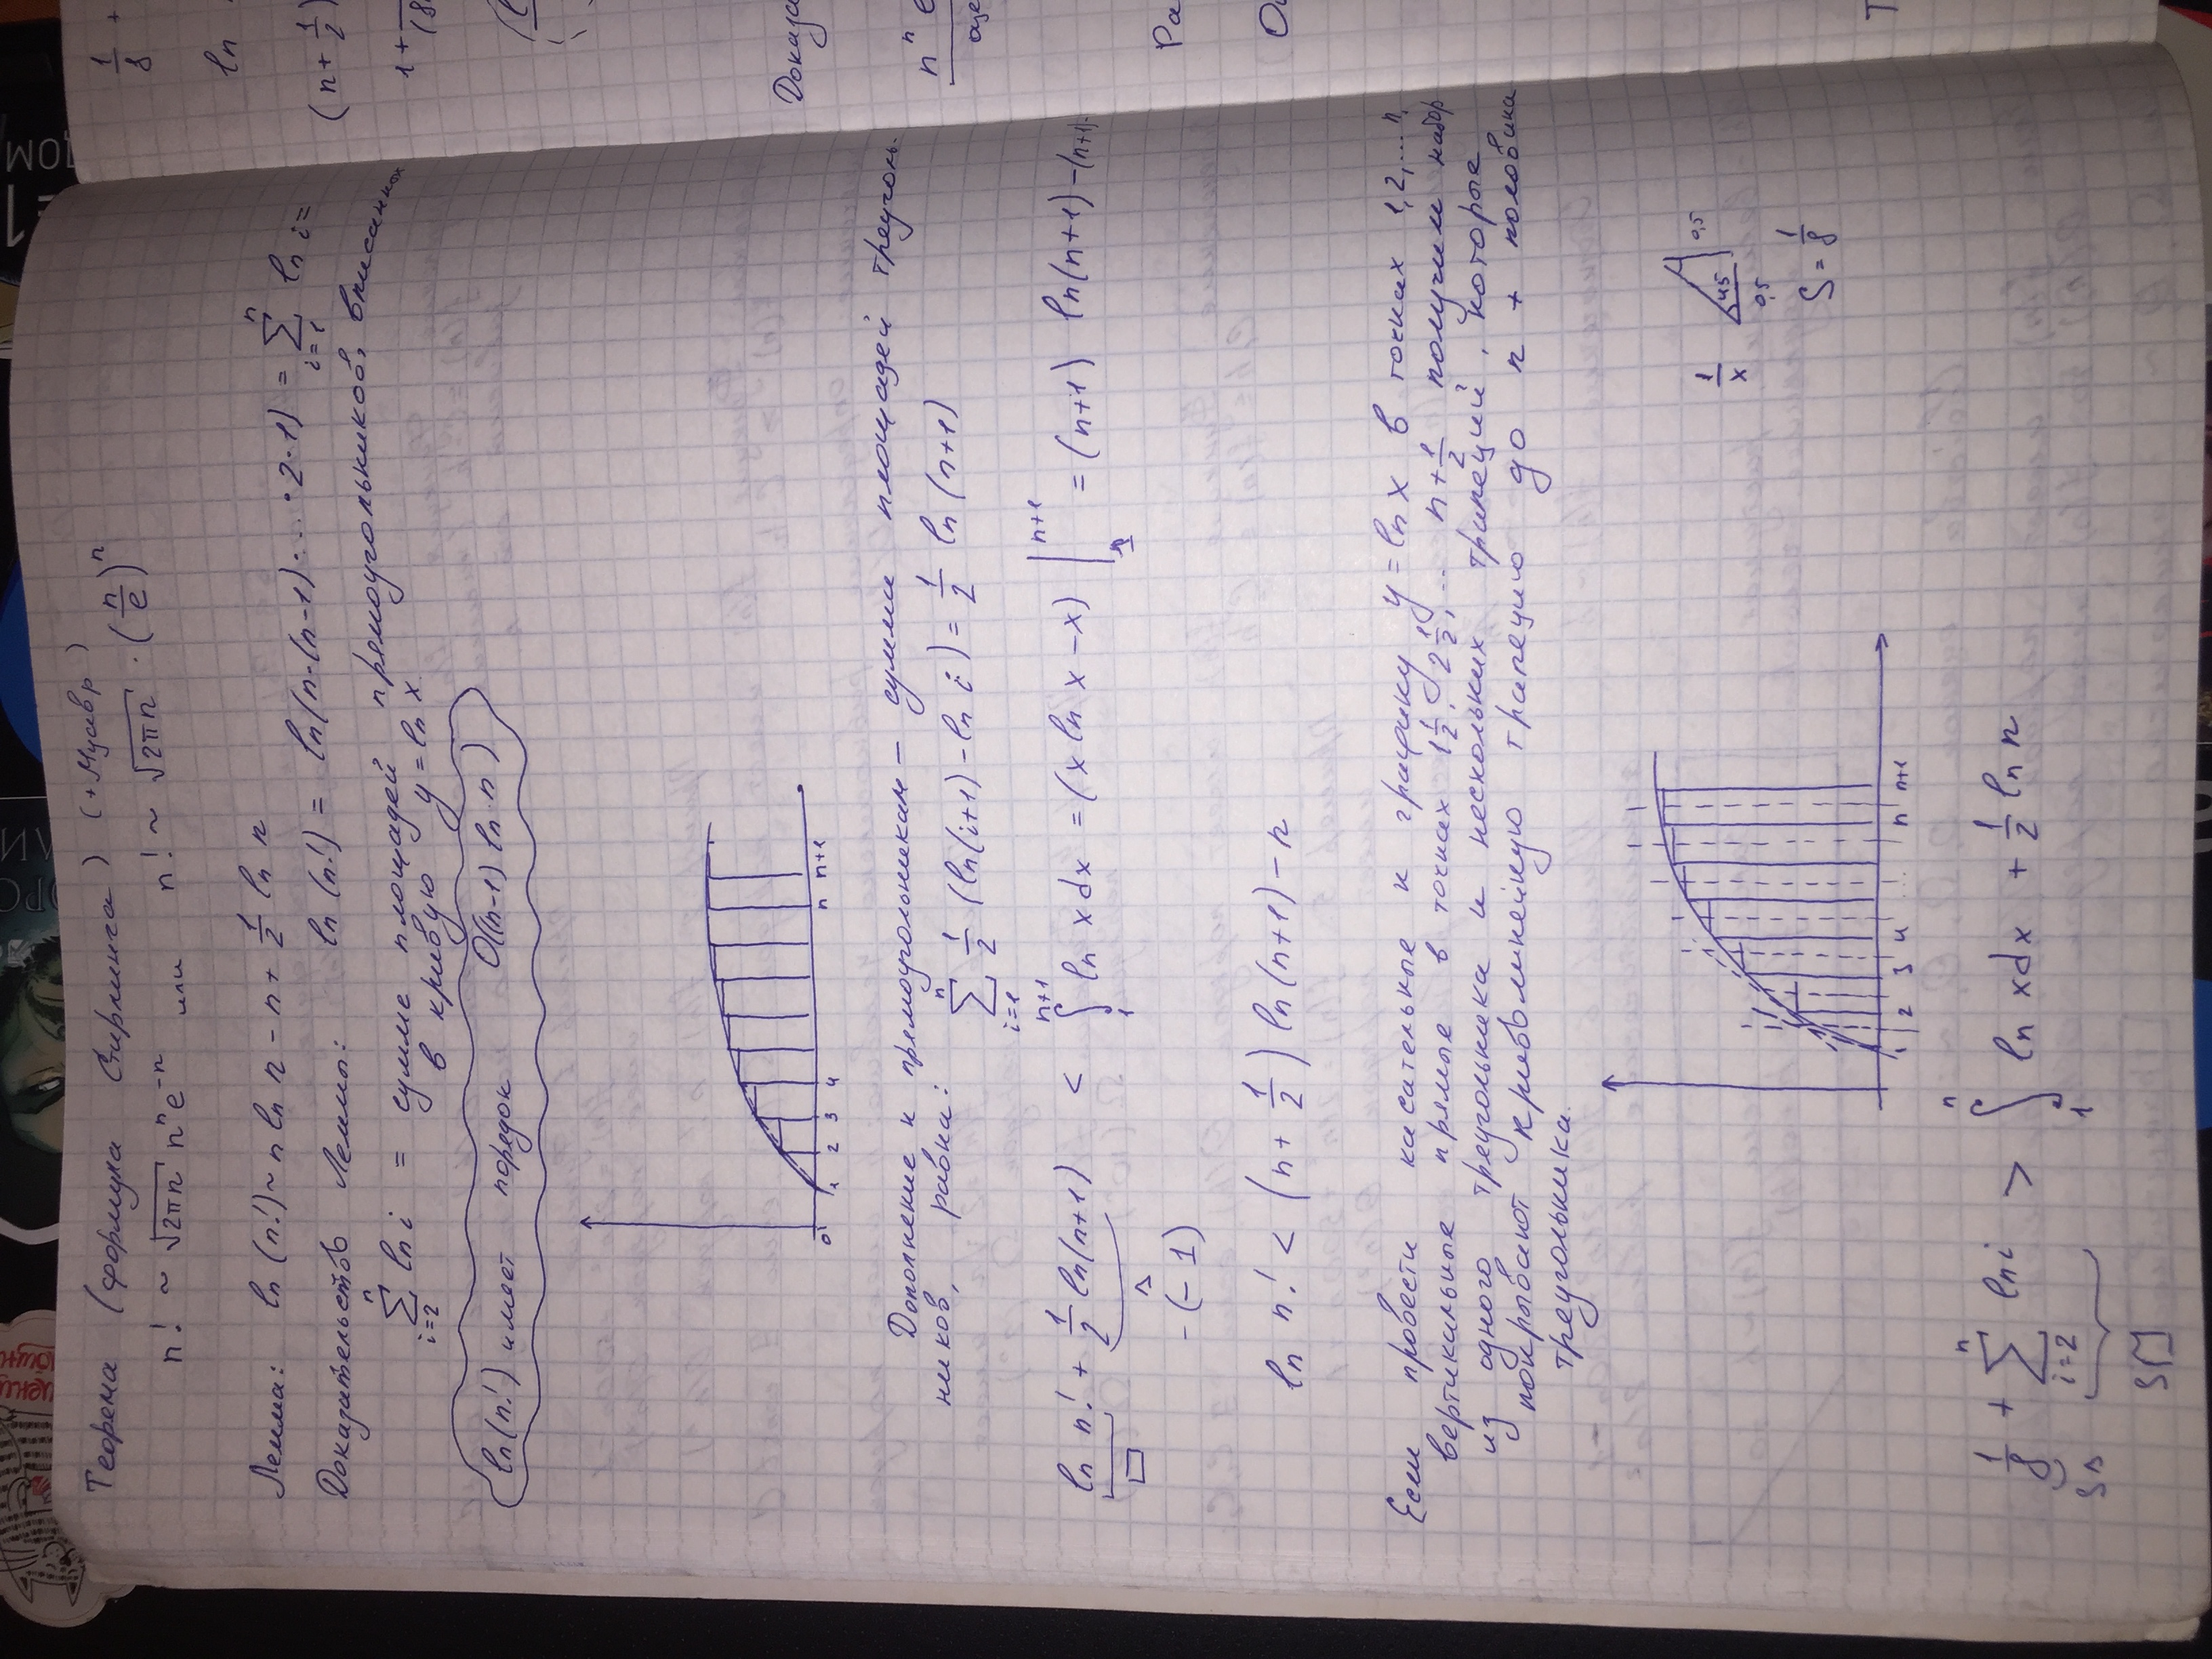 Теорема (формула Стирлинга) (+Муавр)
n! ~ √2πn nⁿe⁻ⁿ или n! ~ √2πn · (n/e)ⁿ
Лемма: ln(n!) ~ n ln n - n + 1/2 ln n
Доказательств Леммы: ln(n!) = ln(n·(n-1)·...·2·1) = ∑_{i=1}^{n} ln i =
∑_{i=2}^{n} ln i = сумме площадей прямоугольников, вписанных
в кривую y = ln x
ln(n!) имеет порядок O((n-1) ln n)
0 1 2 3 4 n n+1
Дополнение к прямоугольникам – сумма площадей треуголь-
ников, равна: ∑_{i=1}^{n} 1/2 (ln(i+1) - ln i) = 1/2 ln(n+1)
ln n! + 1/2 ln(n+1) < ∫_{1}^{n+1} ln x dx = (x ln x - x) |_{1}^{n+1} = (n+1) ln(n+1) - (n+1) -
□ △
- (- 1)
ln n! < (n + 1/2) ln(n+1) - n
Если провести касательные к графику y = ln x в точках 1,2,...n,
вертикальные прямые в точках 1 1/2, 2 1/2, ... n + 1/2 получим набор
из одного треугольника и нескольких трапеций, которые
покрывают криволинейную трапецию до n + половина
треугольника.
1/x 45 0,5
0,5
S = 1/8
1 2 3 4 ... n n+1
1/8 + ∑_{i=2}^{n} ln i > ∫_{1}^{n} ln x dx + 1/2 ln n
S△
S□
1/8 +
ln
(n + 1/2)
1 +
Доказа
nⁿ e
оце
Ра